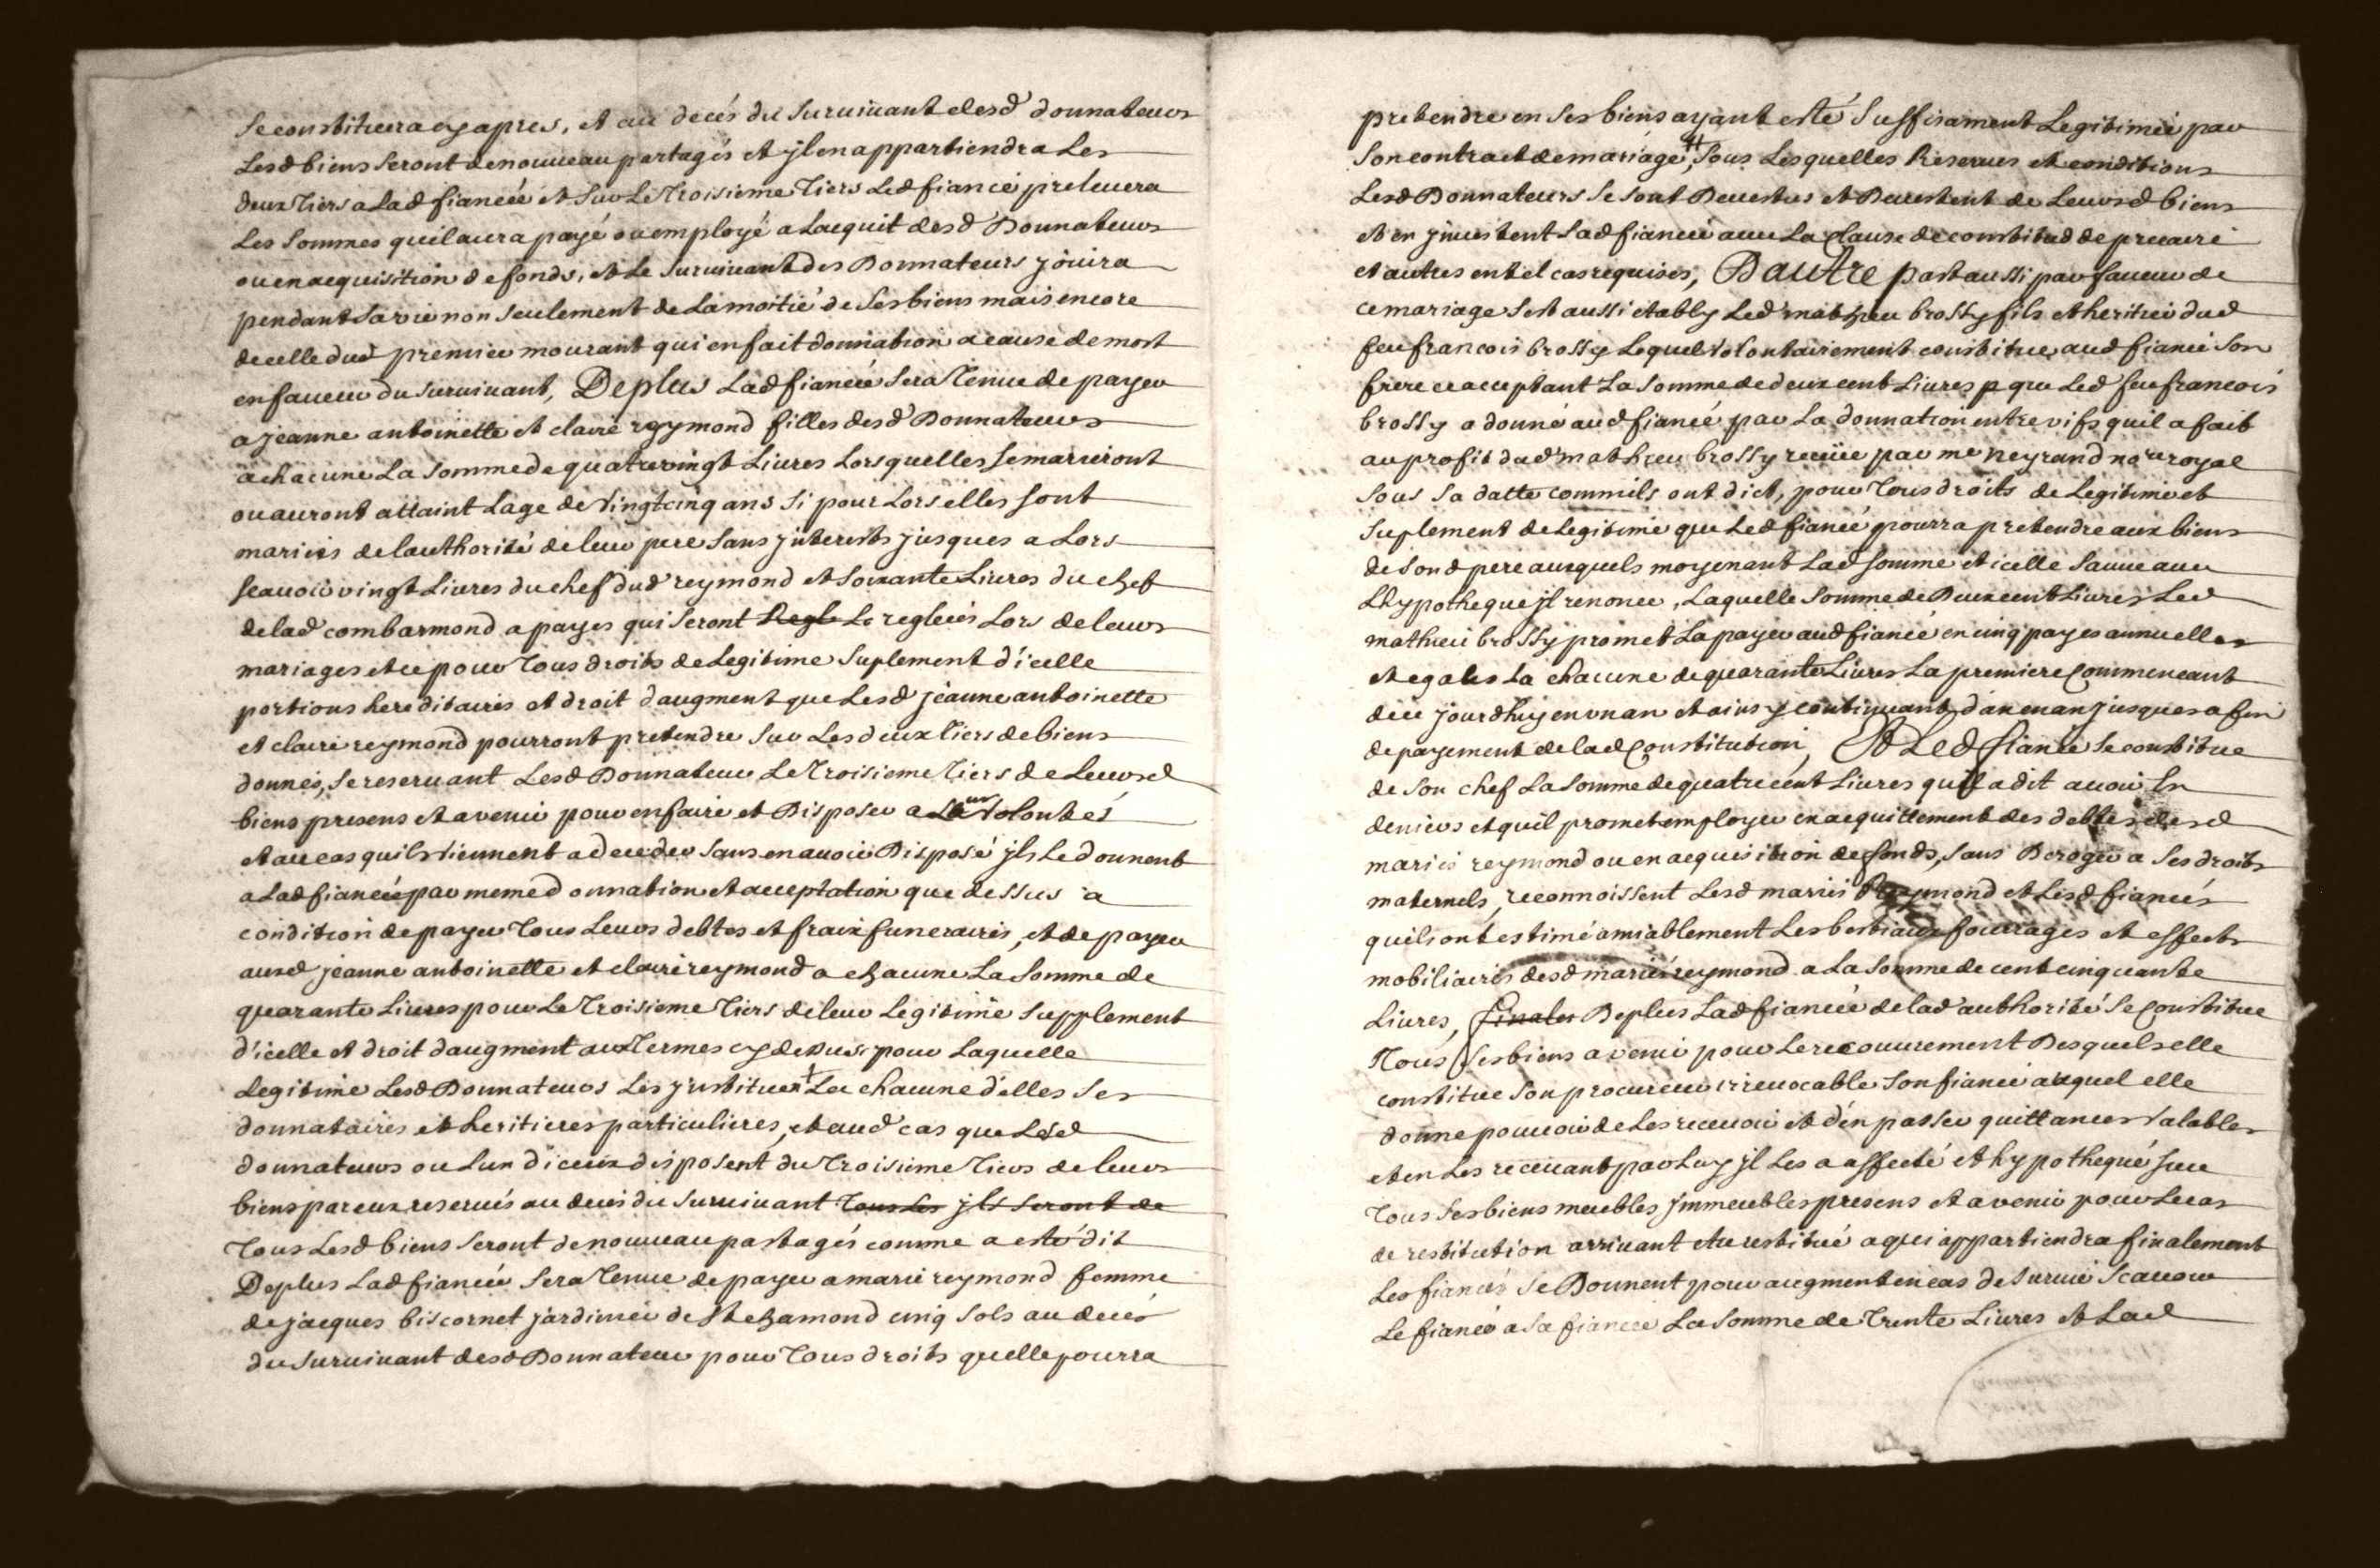 se constituera cy apres, et au decés du survivant desd donnateurs
Lesd biens seront denouveau partagés et jl en appartiendra Les
deux tiers a Lad fiancéé et sur Le troisieme tiers Led fiancé prelevera
Les sommes quil aura payé ou employé a Lacquit desd Donnateurs
ou en acquisition de fonds, et Le survivant des Donnateurs jouira
pendant sa vie non seulement de La moitié de ses biens mais encore
de celle dud premier mourant qui en fait donnation a cause de mort
en faveur du survivant, De plus Lad fiancéé sera tenue de payer
a jeanne antoinette et claire reymond filles desd Donnateurs
a chacune La somme de quatrevingt Livres Lorsquelles se marieront
ou auront attaint Lage de vingtcinq ans si pour Lors elles sont
mariées de lauthorité de leur pere sans jnterests jusques a Lors
scavoir vingt Livres du chef dud reymond et soixante Livres du chef
de lad combarmond a payes qui seront Regle Le regleés Lors de leurs
mariages et ce pour tous droits de Legitime suplement d'icelle
portions hereditaires et droit daugment que Lesd jeanne antoinette
et claire reymond pourront pretendre sur Les deux tiers de biens
donnés, se reservant Lesd Donnateurs Le troisieme tiers de Leursd
biens presens et a venir pour en faire et Disposer a Leur volontés
et au cas quils viennent a deceder sans en avoir Disposé jls Le donnent
a Lad fiancéé par meme donnation et acceptation que dessus a
condition de payer tous Leurs debtes et fraix funeraires, et de payer
auxd jeanne antoinette et claire reymond a chacune La somme de
quarante Livres pour Le troisieme tiers de leur Legitime supplement
d'icelle et droit daugment aux termes cy dessus pour Laquelle
Legitime Lesd Donnateurs Les jnstituent La chacune d'elles ses
donnataires et heritieres particulieres, et aud cas que Lesd
donnateurs ou Lun diceux disposent du troisieme tiers de leurs
biens par eux reservés au decés du survivant tous Les jls seront de
tous Lesd biens seront denouveau partagés comme a esté dit
De plus Lad fiancéé sera tenue de payer a marie reymond femme
de jacques biscornet jardinier de St chamond cinq sols au decés
du survivant desd Donnateurs pour tous droits quelle pourra
pretendre en ses biens ayant esté suffisament Legitimée par
son contract de mariage, # sous Lesquelles Reserves et conditions
Lesd Donnateurs se sont Devestus et Devestent de Leursd biens
et en jnvestent Lad fiancéé avec La clause de constitud de precaire
et autres en tel cas requises, D'autre part aussi par faveur de
ce mariage s'est aussi etably Led mathieu brossy fils et heritier dud
feu francois brossy Lequel volontairement constitue aud fiancé son
frere ce acceptant La somme de deux cent Livres p que Led feu francois
brossy a donné aud fiancé par La donnation entre vifs quil a fait
au profit dud mathieu brossy receüe par me neyrand nore royal
sous sa datte comm'ils ont dict, pour tous droits de Legitime et
suplement de Legitime que Led fiancé pourra pretendre aux biens
de sond pere auxquels moyenant Lad somme et icelle sauve avec
Lhypotheque jl renonce, Laquelle somme de Deux cent Livres Led
mathieu brossy promet La payer aud fiancé en cinq payes annuelles
et egales La chacune de quarante Livres La premiere commencant
de ce jourdhuy en un an et ainsy continuant d'an en an jusques a fin
de payement de lad constitution, Et Led fiancé se constitue
de son chef La somme de quatre cent Livres quil a dit avoir En
deniers et quil promet employer en acquittement des debtes desd
mariés reymond ou en acquisition de fonds, sans Deroger a ses droits
maternels, reconnoissent Lesd mariés Reymond et Lesd fiancés
quils ont estimé amiablement Les bestiaux fourages et effects
mobiliaires desd mariés reymond a La somme de cent cinquante
Livres, finales De plus Lad fiancéé de lad authorité se constitue
Tous ses biens a venir pour Le recouvrement Desquels elle
constitue son procureur irrevocable son fiancé auquel elle
donne pouvoir de Les recevoir et d'en passer quittances valables
et en Les recevant par Luy jl Les a affecté et hypothequé sur
tous ses biens meubles jmmeubles presens et a venir pour Le cas
de restitution arrivant etre restitué a qui appartiendra finalement
Les fiancés se Donnent pour augment en cas de survie scavoir
Le fiancé a sa fiancéé La somme de trente Livres et Lad